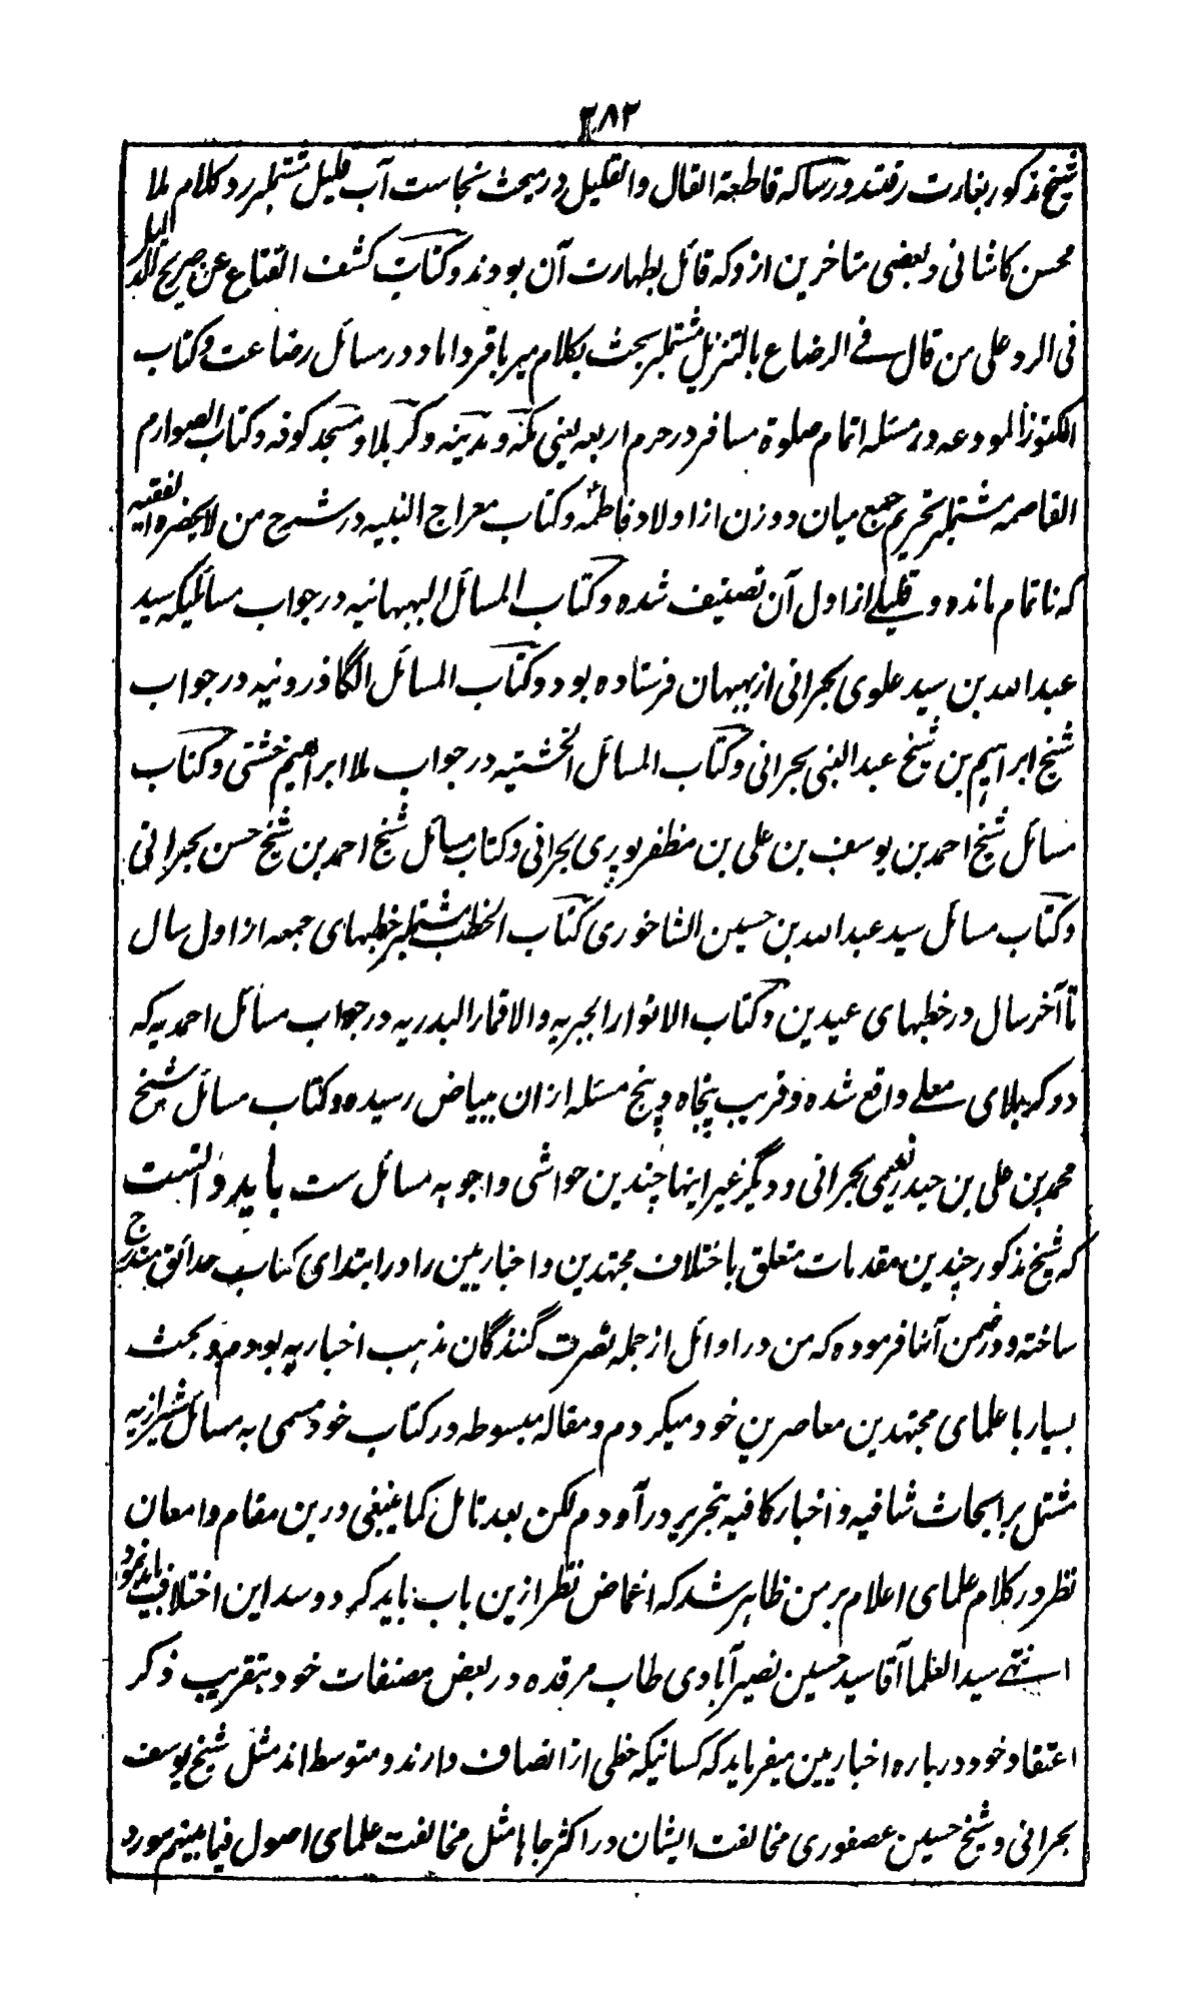 ٢٨٢
شیخ مذکور بغارت رفتند و رساله قاطعة القال والقلیل در مبحث نجاست آب قلیل مشتملبر رد کلام ملا
محسن کاشانی و بعضی متاخرین ازو که قائل بطهارت آن بودند و کتاب کشف القناع عن صریح الدلیل
فی الرد علی من قال فے الرضاع بالتنزیل مشتملبر بحث بکلام میر باقر داماد در مسائل رضاعت و کتاب
الکنوز المودعه در مسئله اتمام صلوة مسافر در حرم اربعه یعنی مکه و مدینه و کربلا و مسجد کوفه و کتاب الصوارم
القاصمه مشتملبر تحریم جمع میان دو زن از اولاد فاطمه و کتاب معراج النبیه در شرح من لا یحضره الفقیه
که ناتمام مانده و قلیلے از اول آن تصنیف شده و کتاب المسائل البهبهانیه در جواب مسائلیکه سید
عبدالله بن سید علوی بحرانی از بهبهان فرستاده بود و کتاب المسائل الگاذرونیه در جواب
شیخ ابراهیم بن شیخ عبدالنبی بحرانی و کتاب المسائل الخشتیه در جواب ملا ابراهیم خشتی و کتاب
مسائل شیخ احمد بن یوسف بن علی بن مظفر یوری بحرانی و کتاب مسائل شیخ احمد بن شیخ حسن بحرانی
و کتاب مسائل سید عبدالله بن حسین الشاخوری کتاب الخطب مشتملبر خطبهای جمعه از اول سال
تا آخر سال در خطبهای عیدین و کتاب الانوار الحبریه والاقمار البدریه در جواب مسائل احمدیه که
در کربلای معلے واقع شده و قریب پنجاه و پنج مسئله ازان ببیاض رسیده و کتاب مسائل شیخ
محمد بن علی بن حیدر نعیمی بحرانی و دیگر غیر اینها چندین حواشی و اجوبه مسائل ست باید دانست
که شیخ مذکور چندین مقدمات متعلق باختلاف مجتهدین و اخباریین را در ابتدای کتاب حدائق مندرج
ساخته و در ضمن آنها فرموده که من در اوائل از جمله نصرت کنندگان مذهب اخباریه بودم و بحث
بسیار با علمای مجتهدین معاصرین خود میکردم و مقاله مبسوطه در کتاب خود مسمی به مسائل شیرازیه
مشتمل بر ابحاث شافیه و اخبار کافیه بتحریر در آوردم لکن بعد تامل کما ینبغی درین مقام و امعان
نظر در کلام علمای اعلام بر من ظاهر شد که اغماض نظر ازین باب باید کرد و سد این اختلاف باید نمود
انتهے سید العلما آقا سید حسین نصیرآبادی طاب مرقده در بعض مصنفات خود بتقریب ذکر
اعتقاد خود درباره اخباریین میفرماید که کسانیکه حظی از انصاف دارند و متوسط اند مثل شیخ یوسف
بحرانی و شیخ حسین عصفوری مخالفت ایشان در اکثر جاها مثل مخالفت علمای اصول فیما بینهم مورد